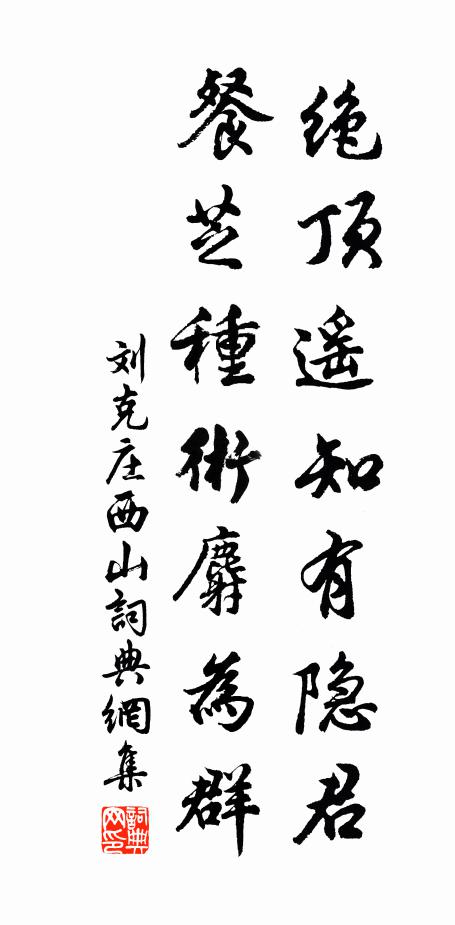 绝顶遥知有隐君
餐芝種術麝為群
刘克庄西山詞典網集
詞典网印